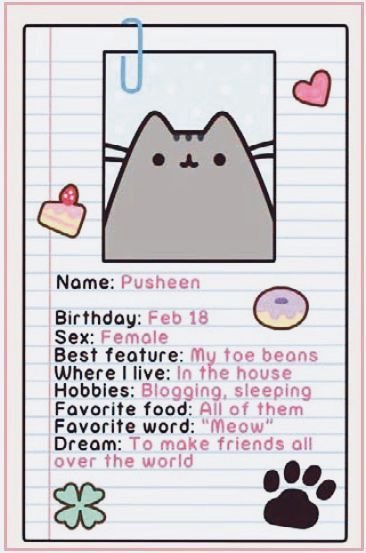 Name: Pusheen
Birthday: Feb 18
Sex: Female
Best feature: My toe beans
Where I live: In the house
Hobbies: Blogging, sleeping
Favorite food: All of them
Favorite word: "Meow"
Dream: To make friends all
over the world